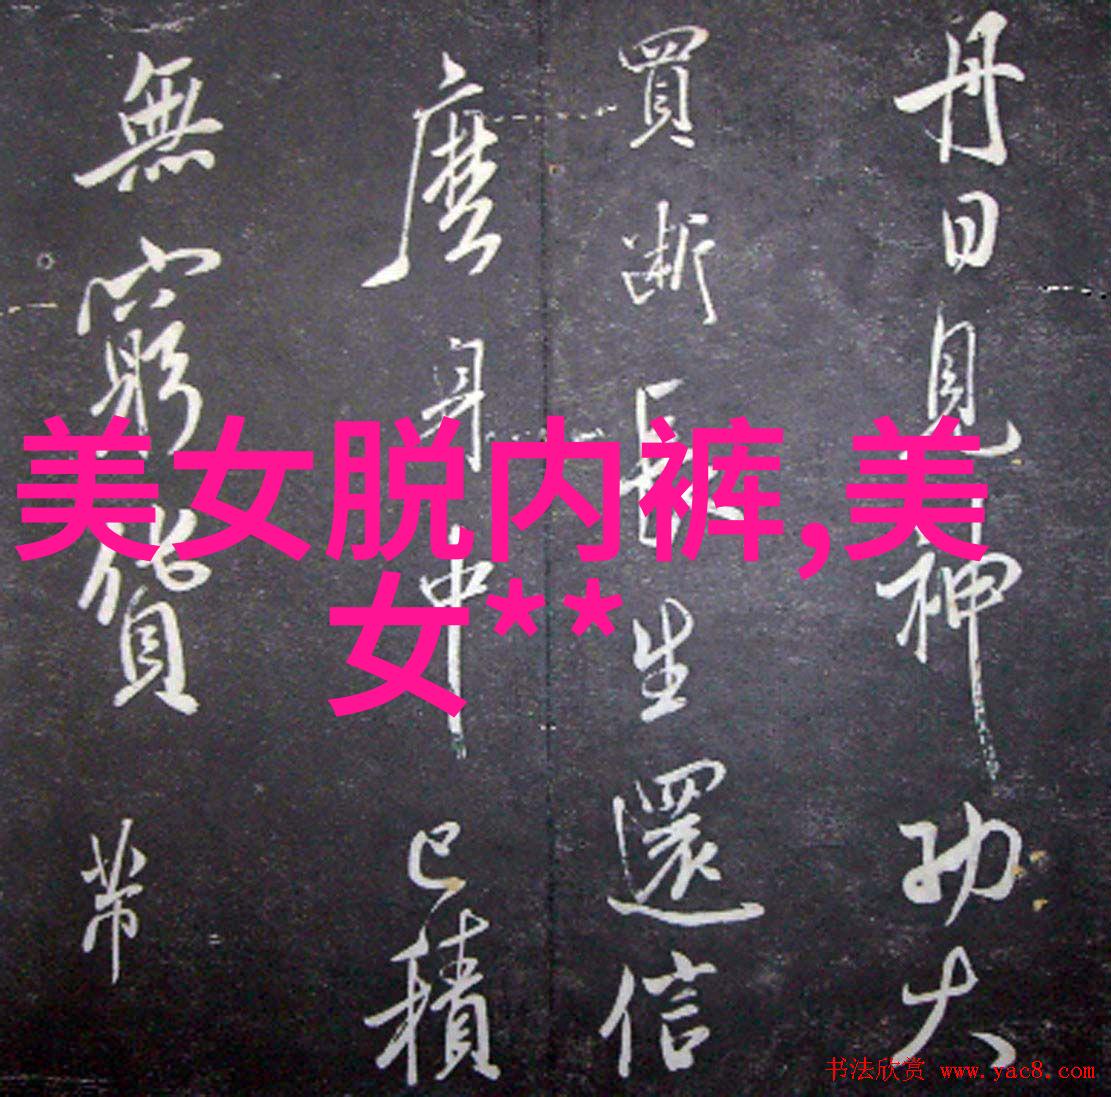 丹日見神功大
買斷長生還信
麽身中已積
無窮貨带
美女脱内裤,美
女**
书法欣赏 www.yac8.com